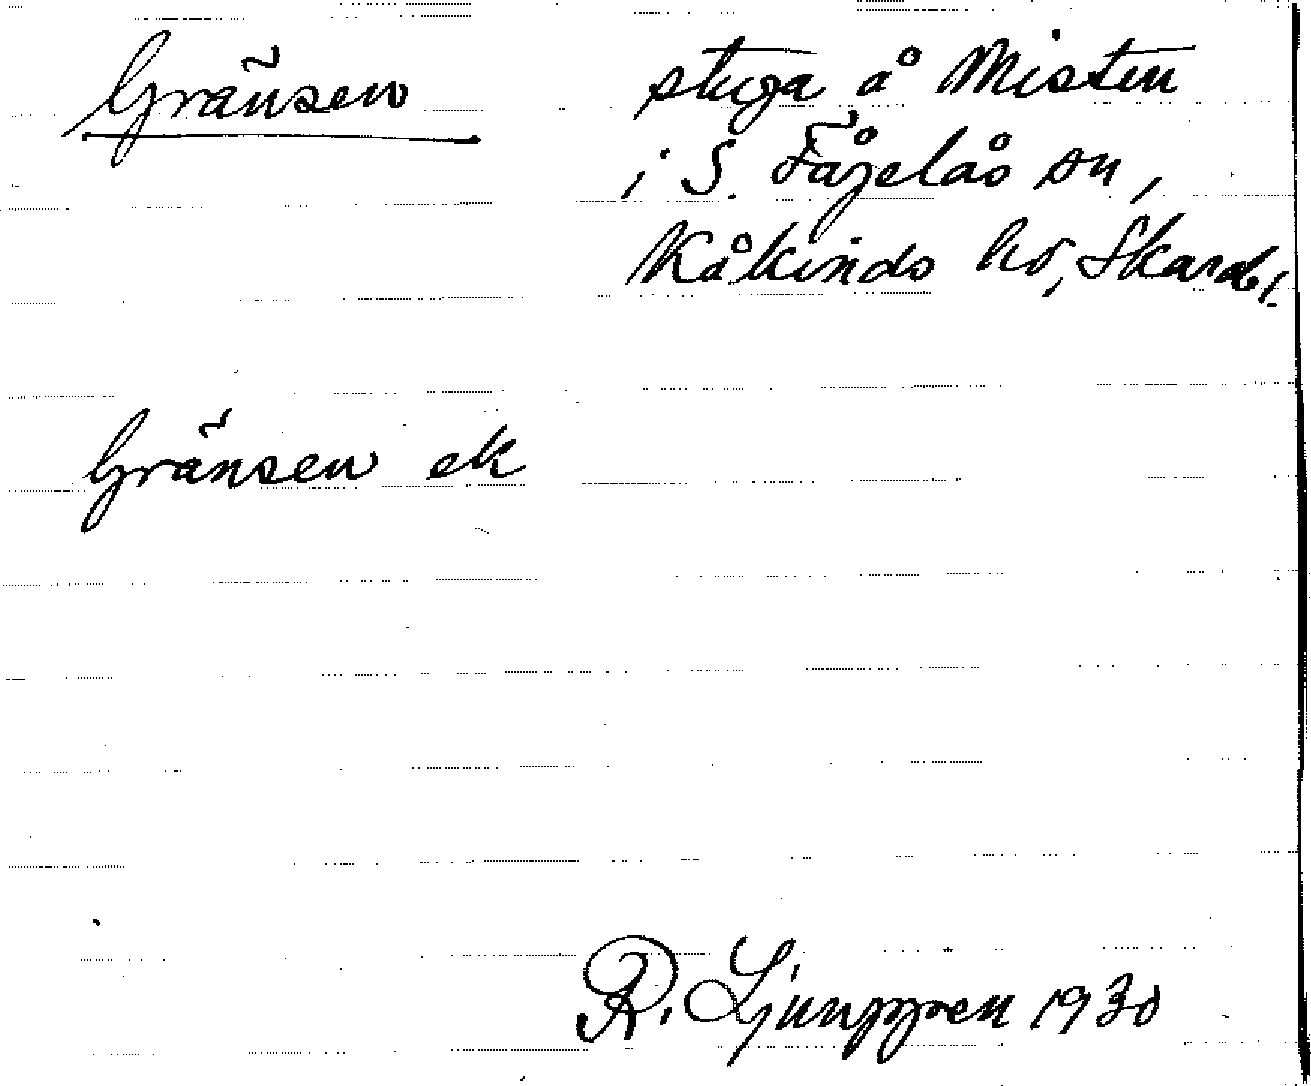 Gränsen
stuga å Misten
i S. Fågelås sn,
Kåkinds hd, Skarab. l.
Gränsen ek
R. Ljunggren 1930